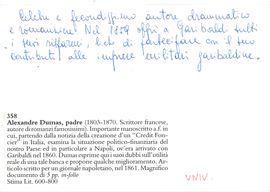 Celebre e fecondissimo autore drammatico
e romanziere. Nel 1859 offrì a Garibaldi tutti
i suoi risparmi, lieto di partecipare con il suo
contributo alle imprese militari garibaldine.
358
Alexandre Dumas, padre (1803-1870. Scrittore francese,
autore di romanzi famosissimi). Importante manoscritto a f. in
cui, partendo dalla notizia della creazione d'un "Credit Fon-
cier" in Italia, esamina la situazione politico-finanziaria del
nostro Paese ed in particolare a Napoli, ov'era arrivato con
Garibaldi nel 1860. Dumas esprime qui i suoi dubbi sull'utilità
reale di una tale banca e propone qualche miglioramento. Ar-
ticolo scritto per un giornale napoletano, nel 1861. Magnifico
documento di 5 pp. in-folio
Stima Lit. 600-800